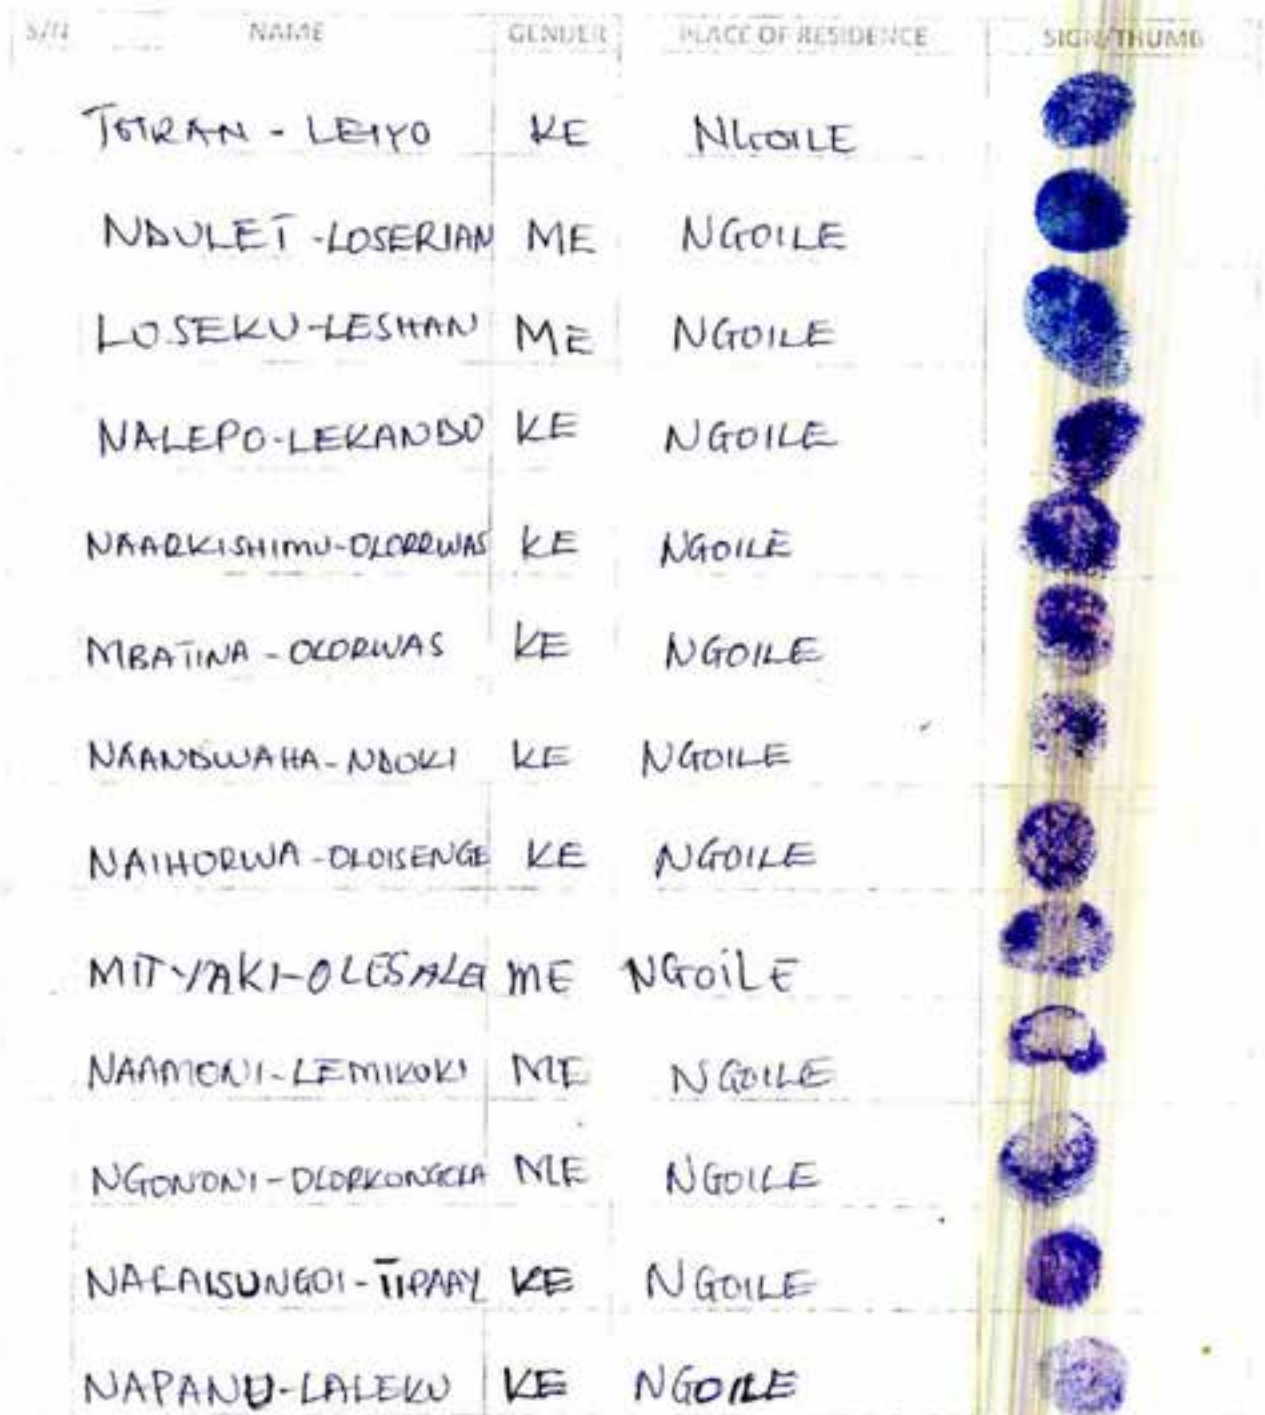 S/N NAME GENDER PLACE OF RESIDENCE SIGN/THUMB
TOIRAN - LEIYO KE NGOILE
NDULET - LOSERIAN ME NGOILE
LOSEKU - LESHAN ME NGOILE
NALEPO - LEKANDO KE NGOILE
NAARKISHIMU - OLORRWAS KE NGOILE
MBATINA - OLORWAS KE NGOILE
NAANDWAHA - NDOKI KE NGOILE
NAIHORWA - OLOISENGE KE NGOILE
ME NGOILE
NAAMONI - LEMIKOKI ME NGOILE
NGONONI - ME NGOILE
KE NGOILE
NAPANU - LALEKU KE NGOILE